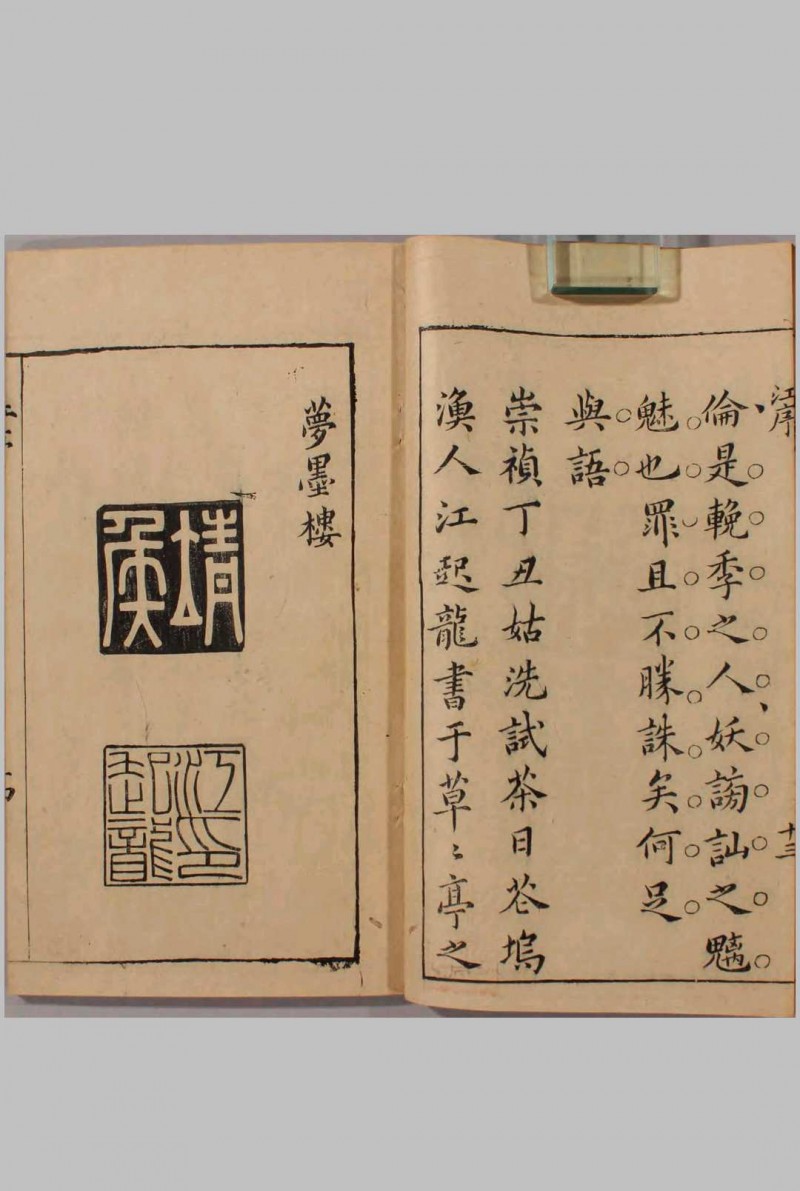 江序
十三
倫是輓季之人妖謗訕之魑
魅也罪且不勝誅矣何足
與語
崇禎丁丑姑洗試茶日苍塢
漁人江起龍書于草〻亭之
夢墨樓
靖侯
江起龍印